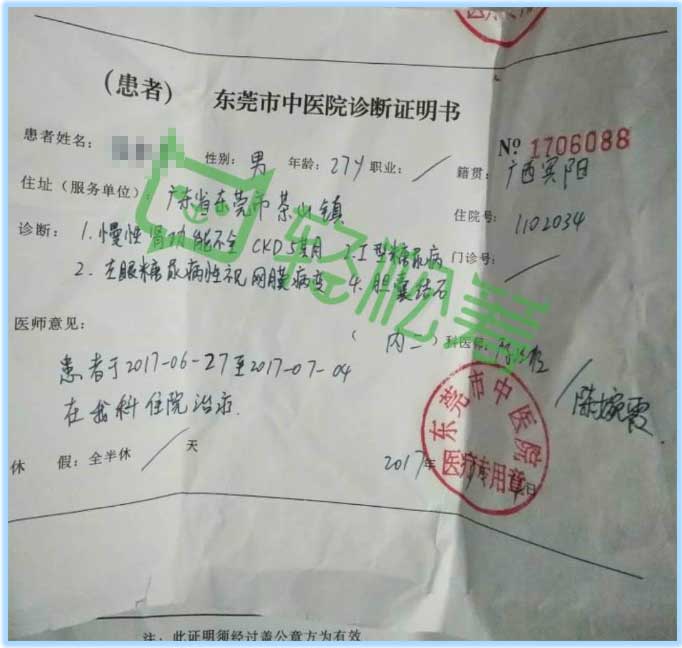 (患者) 东莞市中医院诊断证明书
№ 1706088
患者姓名: 性别: 男 年龄: 27Y 职业: / 籍贯: 广西宾阳
住址(服务单位): 广东省东莞市茶山镇 住院号: 1102034
诊断: 1.慢性肾功能不全 CKD5期 2.I型糖尿病 门诊号: /
2.左眼糖尿病性视网膜病变 4.胆囊结石
轻松筹
医师意见: (内二)科医师:
患者于2017-06-27至2017-07-04
在我科住院治疗.
/陈婉霞
休 假: 全半休 / 天
2017年 日
东莞市中医院
医疗专用章
注: 此证明须经过盖公章方为有效